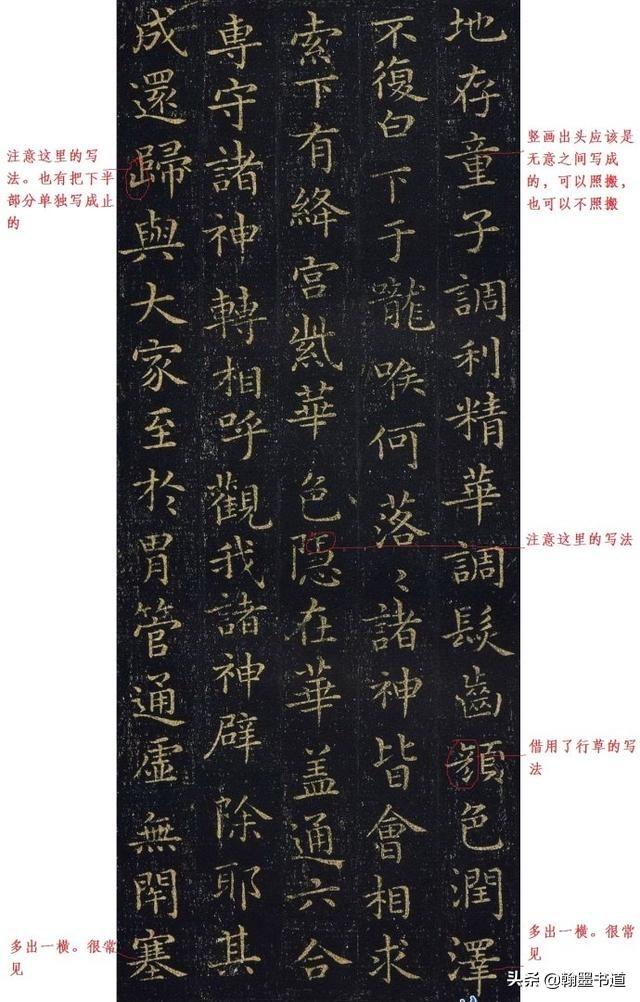 地存童子調利精華調髮齒顏色潤澤
不復白下于嚨喉何落〻諸神皆會相求
索下有絳宮紫華色隱在華盖通六合
專守諸神轉相呼觀我諸神辟除耶其
成還歸與大家至於胃管通虛無閇塞
竖画出头应该是
无意之间写成
的，可以照搬，
也可以不照搬
注意这里的写法
借用了行草的写
法
多出一横。很常
见
注意这里的写
法。也有把下半
部分单独写成止
的
多出一横。很常
见
头条 @翰墨书道